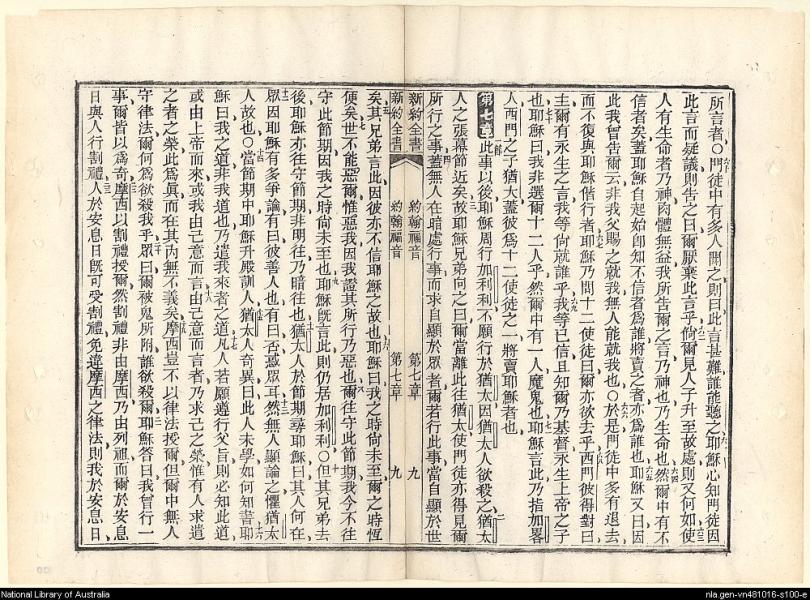 所言者〇門徒中有多人聞之則曰此言甚難誰能聽之耶穌心知門徒因
此言而疑議則告之曰爾厭棄此言乎倘爾見人子升至故處則又何如使
人有生命者乃神肉體無益我所告爾之言乃神也乃生命也然爾中有不
信者矣蓋耶穌自起始卽知不信者爲誰將賣之者亦爲誰也耶穌又曰因
此我曾告爾云非我父賜之就我無人能就我也〇於是門徒中多有退去
而不復與耶穌偕行者耶穌乃問十二使徒曰爾亦欲去乎西門彼得對曰
主爾有永生之言我等尙就誰乎我等已信且知爾乃基督永生上帝之子
也耶穌曰我非選爾十二人乎然爾中有一人魔鬼也耶穌言此乃指加畧
人西門之子猶大蓋彼爲十二使徒之一將賣耶穌者也
第七章此事以後耶穌周行加利利不願行於猶太因猶太人欲殺之猶太
人之張幕節近矣故耶穌兄弟向之曰爾當離此往猶太使門徒亦得見爾
所行之事蓋無人在暗處行事而求自顯於眾者爾若行此事當自顯於世
新約全書 約翰福音 第七章 九
新約全書 約翰福音 第七章 九
矣其兄弟言此因彼亦不信耶穌之故也耶穌曰我之時尙未至爾之時恆
便矣世不能惡爾惟惡我因我證其所行乃惡也爾往守此節期我今不往
守此節期因我之時尙未至也耶穌旣言此則仍居加利利〇但其兄弟去
後耶穌亦往守節期非明往乃暗往也猶太人於節期尋耶穌曰其人何在
眾因耶穌有多爭論有曰彼善人也有曰否惑眾耳然無人顯論之懼猶太
人故也〇當節期中耶穌升殿訓人猶太人奇異曰此人未學如何知書耶
穌曰我之道非我道也乃遣我來者之道凡人若願遵行父旨則必知此道
或由上帝而來或我由己意而言由己意而言者乃求己之榮惟有人求遣
之者之榮此爲眞而在其內無不義矣摩西豈不以律法授爾但爾中無人
守律法爾何爲欲殺我乎眾曰爾被鬼所附誰欲殺爾耶穌答曰我曾行一
事爾皆以爲奇摩西以割禮授爾然割禮非由摩西乃由列祖而爾於安息
日與人行割禮人於安息日旣可受割禮免違摩西之律法則我於安息日
National Library of Australia
nla.gen-vn481016-s100-e